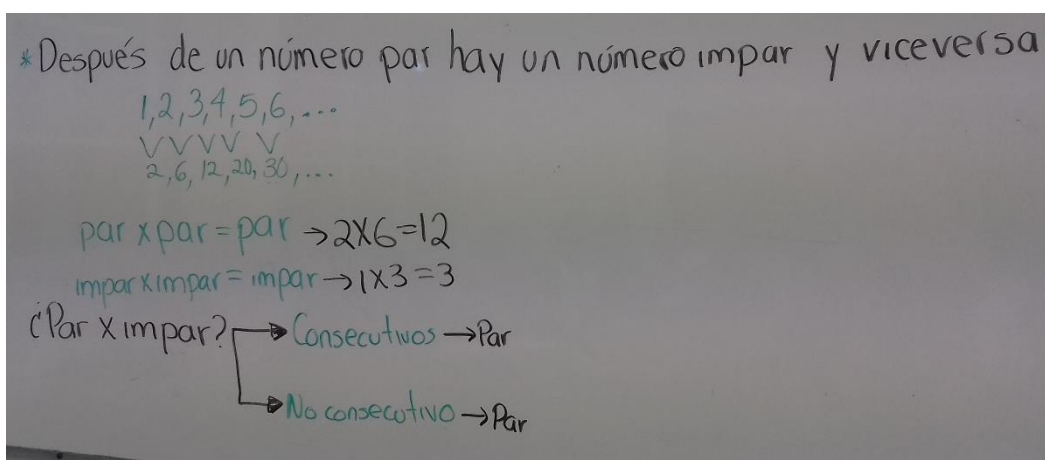 *Después de un número par hay un número impar y viceversa
1,2,3,4,5,6,...
V V V V V
2,6,12,20,30,...
par x par = par → 2x6=12
impar x impar = impar → 1x3=3
¿Par x impar? → Consecutivos → Par
→ No consecutivo → Par